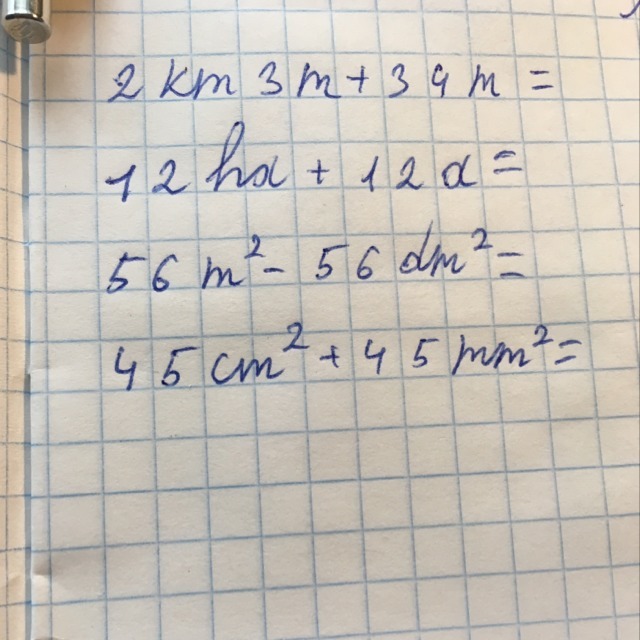 2 km 3 m + 39 m =
12 ha + 12 a =
56 m² - 56 dm² =
45 cm² + 45 mm² =